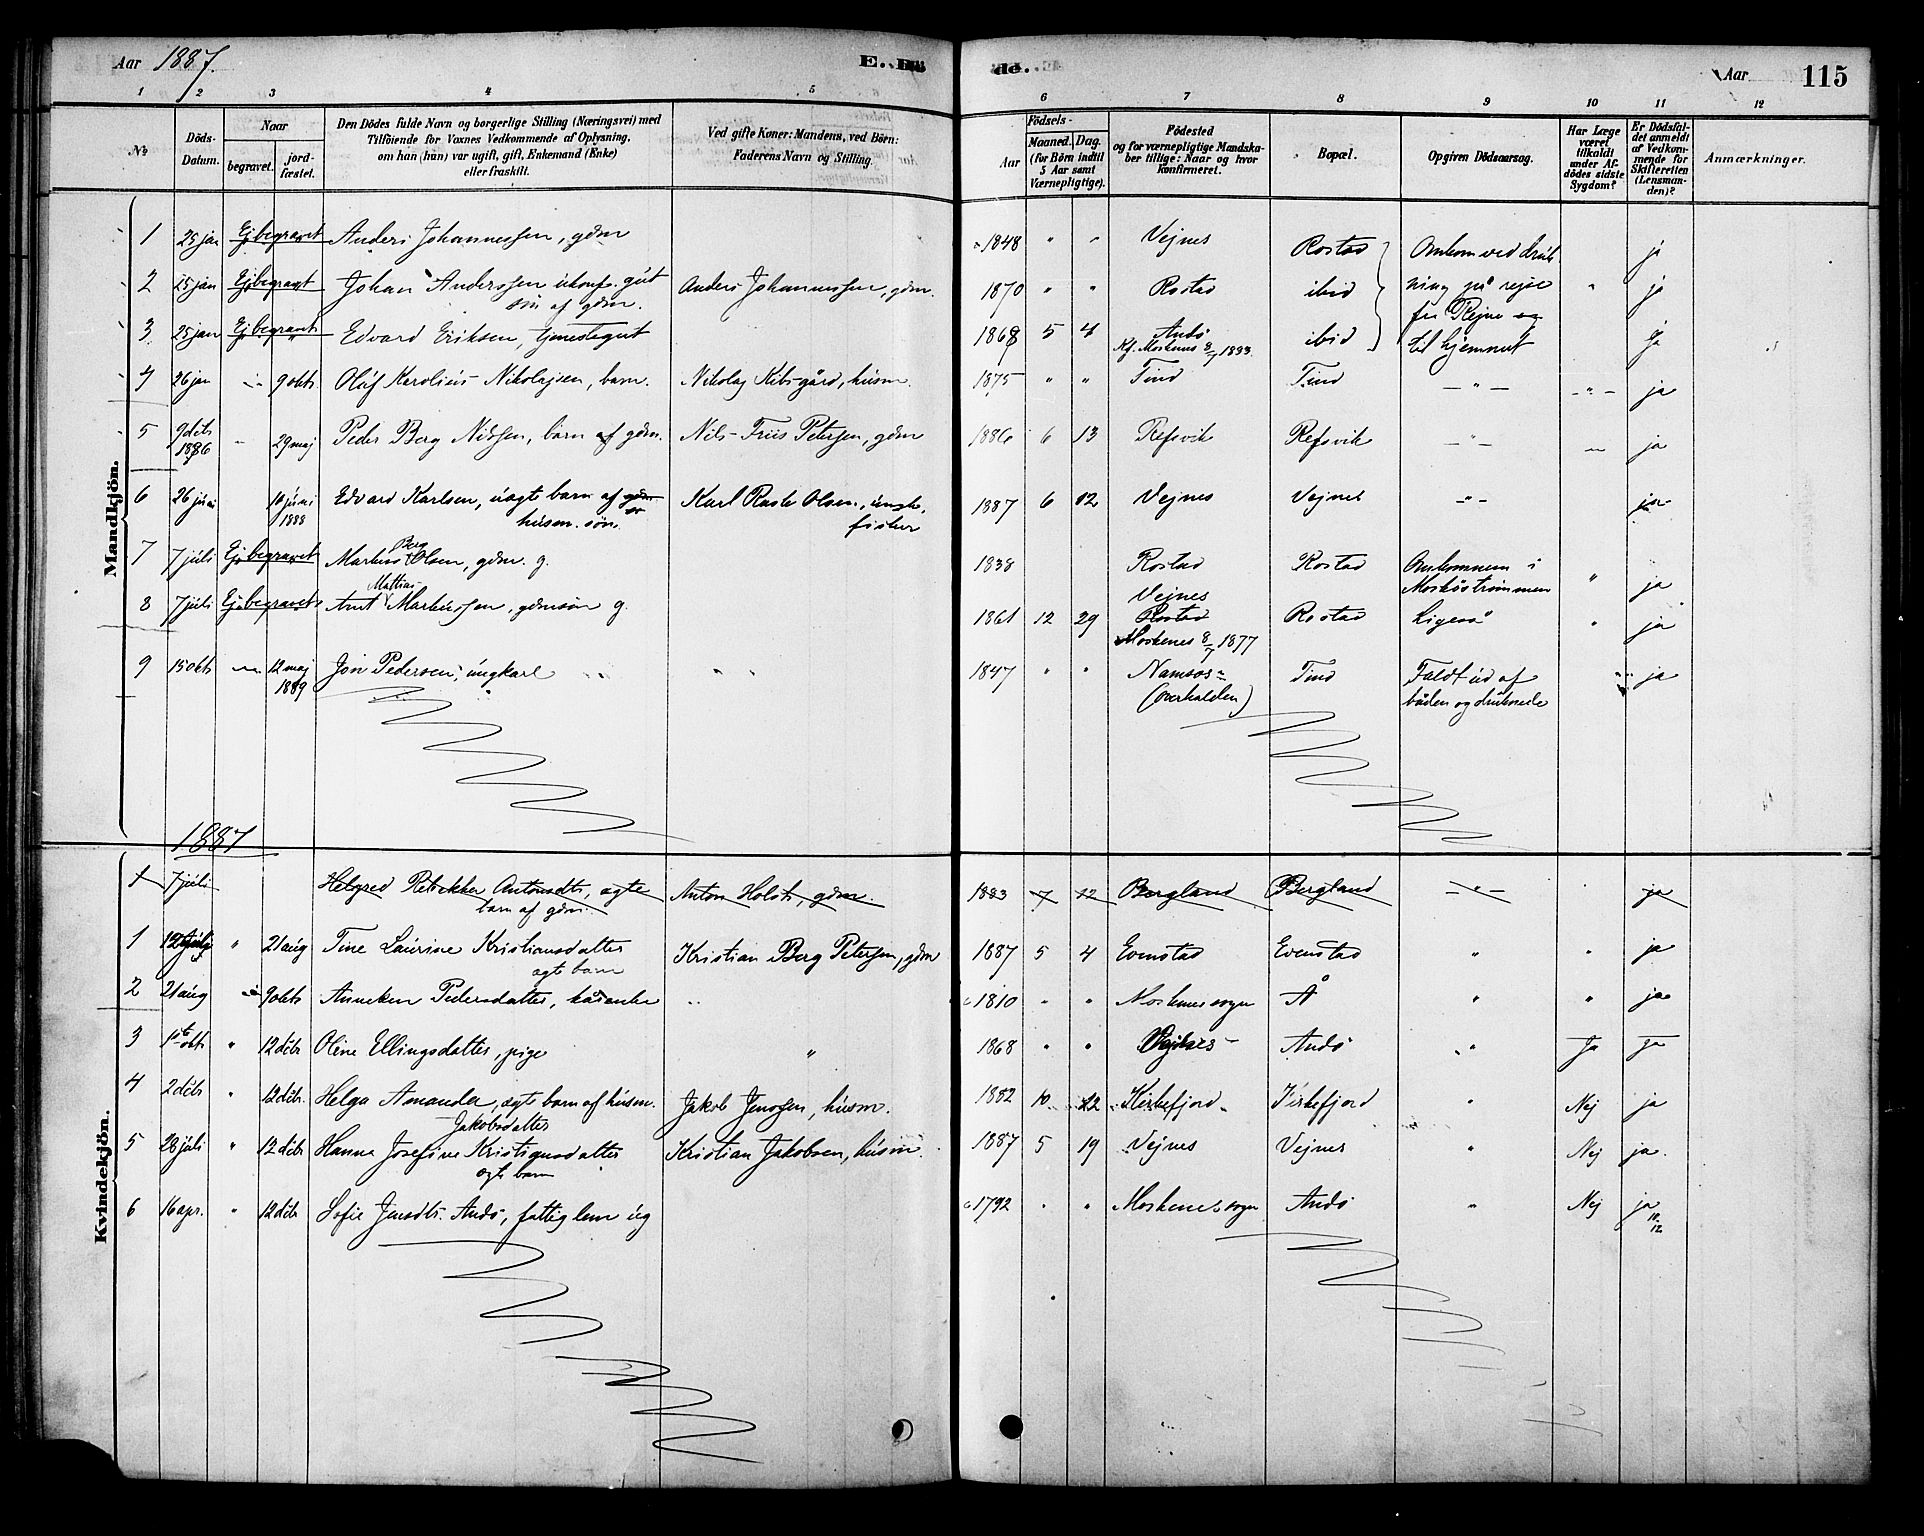 Aar 1887.
E. Dö
de.
Aar
115
1 2 3 4 5
6 7 8 9 10 11 12
№
Döds-Datum.
Naar
begravet.
jord-fæstet.
Den Dödes fulde Navn og borgerlige Stilling (Næringsvei) med
Tilföiende for Voxnes Vedkommende af Oplysning.
om han (hun) var ugift, gift, Enkemand (Enke)
eller fraskilt.
Ved gifte Koner: Mandens, ved Börn:
Faderens Navn og Stilling.
Födsels-
Aar
Maaned. Dag.
(for Börn indtil
5 Aar samt
Værnepligtige).
Födested
og for værnepligtige Mandska-
ber tillige: Naar og hvor
konfirmeret.
Bopæl.
Opgiven Dödsaarsag.
Har Læge
været
tilkaldt
under Af-
dödes sidste
Sygdom?
Er Dödsfal-
det anmeldt
af Vedkom-
mende for
Skifteretten
(Lensman-
den)?
Anmærkninger.
Mandkjön.
1 25 jan Ej begravet Anders Johannessen, gdm 1848 " " Vejnes Rostad Omkom ved druk- ja
2 25 jan Ej begravet Johan Anderssen ukonf. gut Anders Johannessen, gdm. 1870 " " Rostad ibid ning på rejse " ja
søn af gdm. fra Rejne
3 25 jan Ej begravet Edvard Eriksen, tjenestegut 1868 5 4 Andø ibid til hjemmet ja
Kf. Moskenes 8/7 1883.
4 26 jan " 9 okts Oluf Karolius Nikolajsen, barn. Nikolaj Kibsgård, husm. 1875 " " Tind Tind — " — — " — ja
5 9 dcbr 1886 29 maj Peder Berg Nilssen, barn af gdm. Nils Friis Petersen, gdm 1886 6 13 Refsvik Refsvik — " — ja
6 26 juni 10 juni 1888 Edvard Karlsen, uægte barn af gdm Karl Rasto Olsen, ungk., 1887 6 12 Vejnes Vejnes — " — ja
husm. søn. fisker
7 7 juli Ej begravet Markus Berg Olsen, gdm. g. 1838 Rostad Rostad Omkommen i " ja
Moskøstrømmen
8 7 juli Ej begravet Arnt Mattias Markussen, gdmsøn g. 1861 12 29 Vejnes Rostad Rostad Ligeså " ja
Moskenes 8/7 1877
9 15 okts 12 maj 1889 Jon Pedersen, ungkarl " " 1847 " " Namsos Tind Faldt ud af " ja
(Overhalden) båden og druknede
1887
Kvindekjön.
1 7 juli Helgred Rebekka Antonsdtr, ægte Anton Holst, gdm. 1883 7 12 Bergland Bergland — " — ja
barn af gdm.
1 12 juli " 21 aug Tine Laurine Kristiansdatter Kristian Berg Petersen, gdm 1887 5 4 Evenstad Evenstad " " ja
ægte barn
2 21 aug 9 okts Anneken Pedersdatter, kårenke " 1810 " " Moskenes sogn Å " " ja
3 1ste okts " 12 dcbr Oline Ellingsdatter, pige " 1868 " " Vejnes Andø " Ja ja
4 2 dcbr " 12 dcbr. Helga Amanda, ægte barn af husm. Jakob Jenssen, husm. 1882 10 22 Kirkefjord Kirkefjord " Nej ja
Jakobsdatter
5 28 juli " 12 dcbr Hanna Josefine Kristiansdatter Kristian Jakobsen, husm. 1887 5 19 Vejnes Vejnes " Nej ja
ægte barn
6 16 apr. " 12 dcbr Sofie Jensdtr. Andø, fattiglem ug 1792 " " Moskenes sogn Andø " Nej ja
10/12